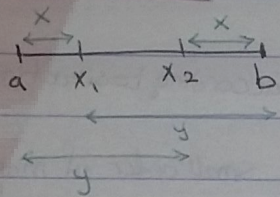 x x
a x₁ x₂ b
y
y